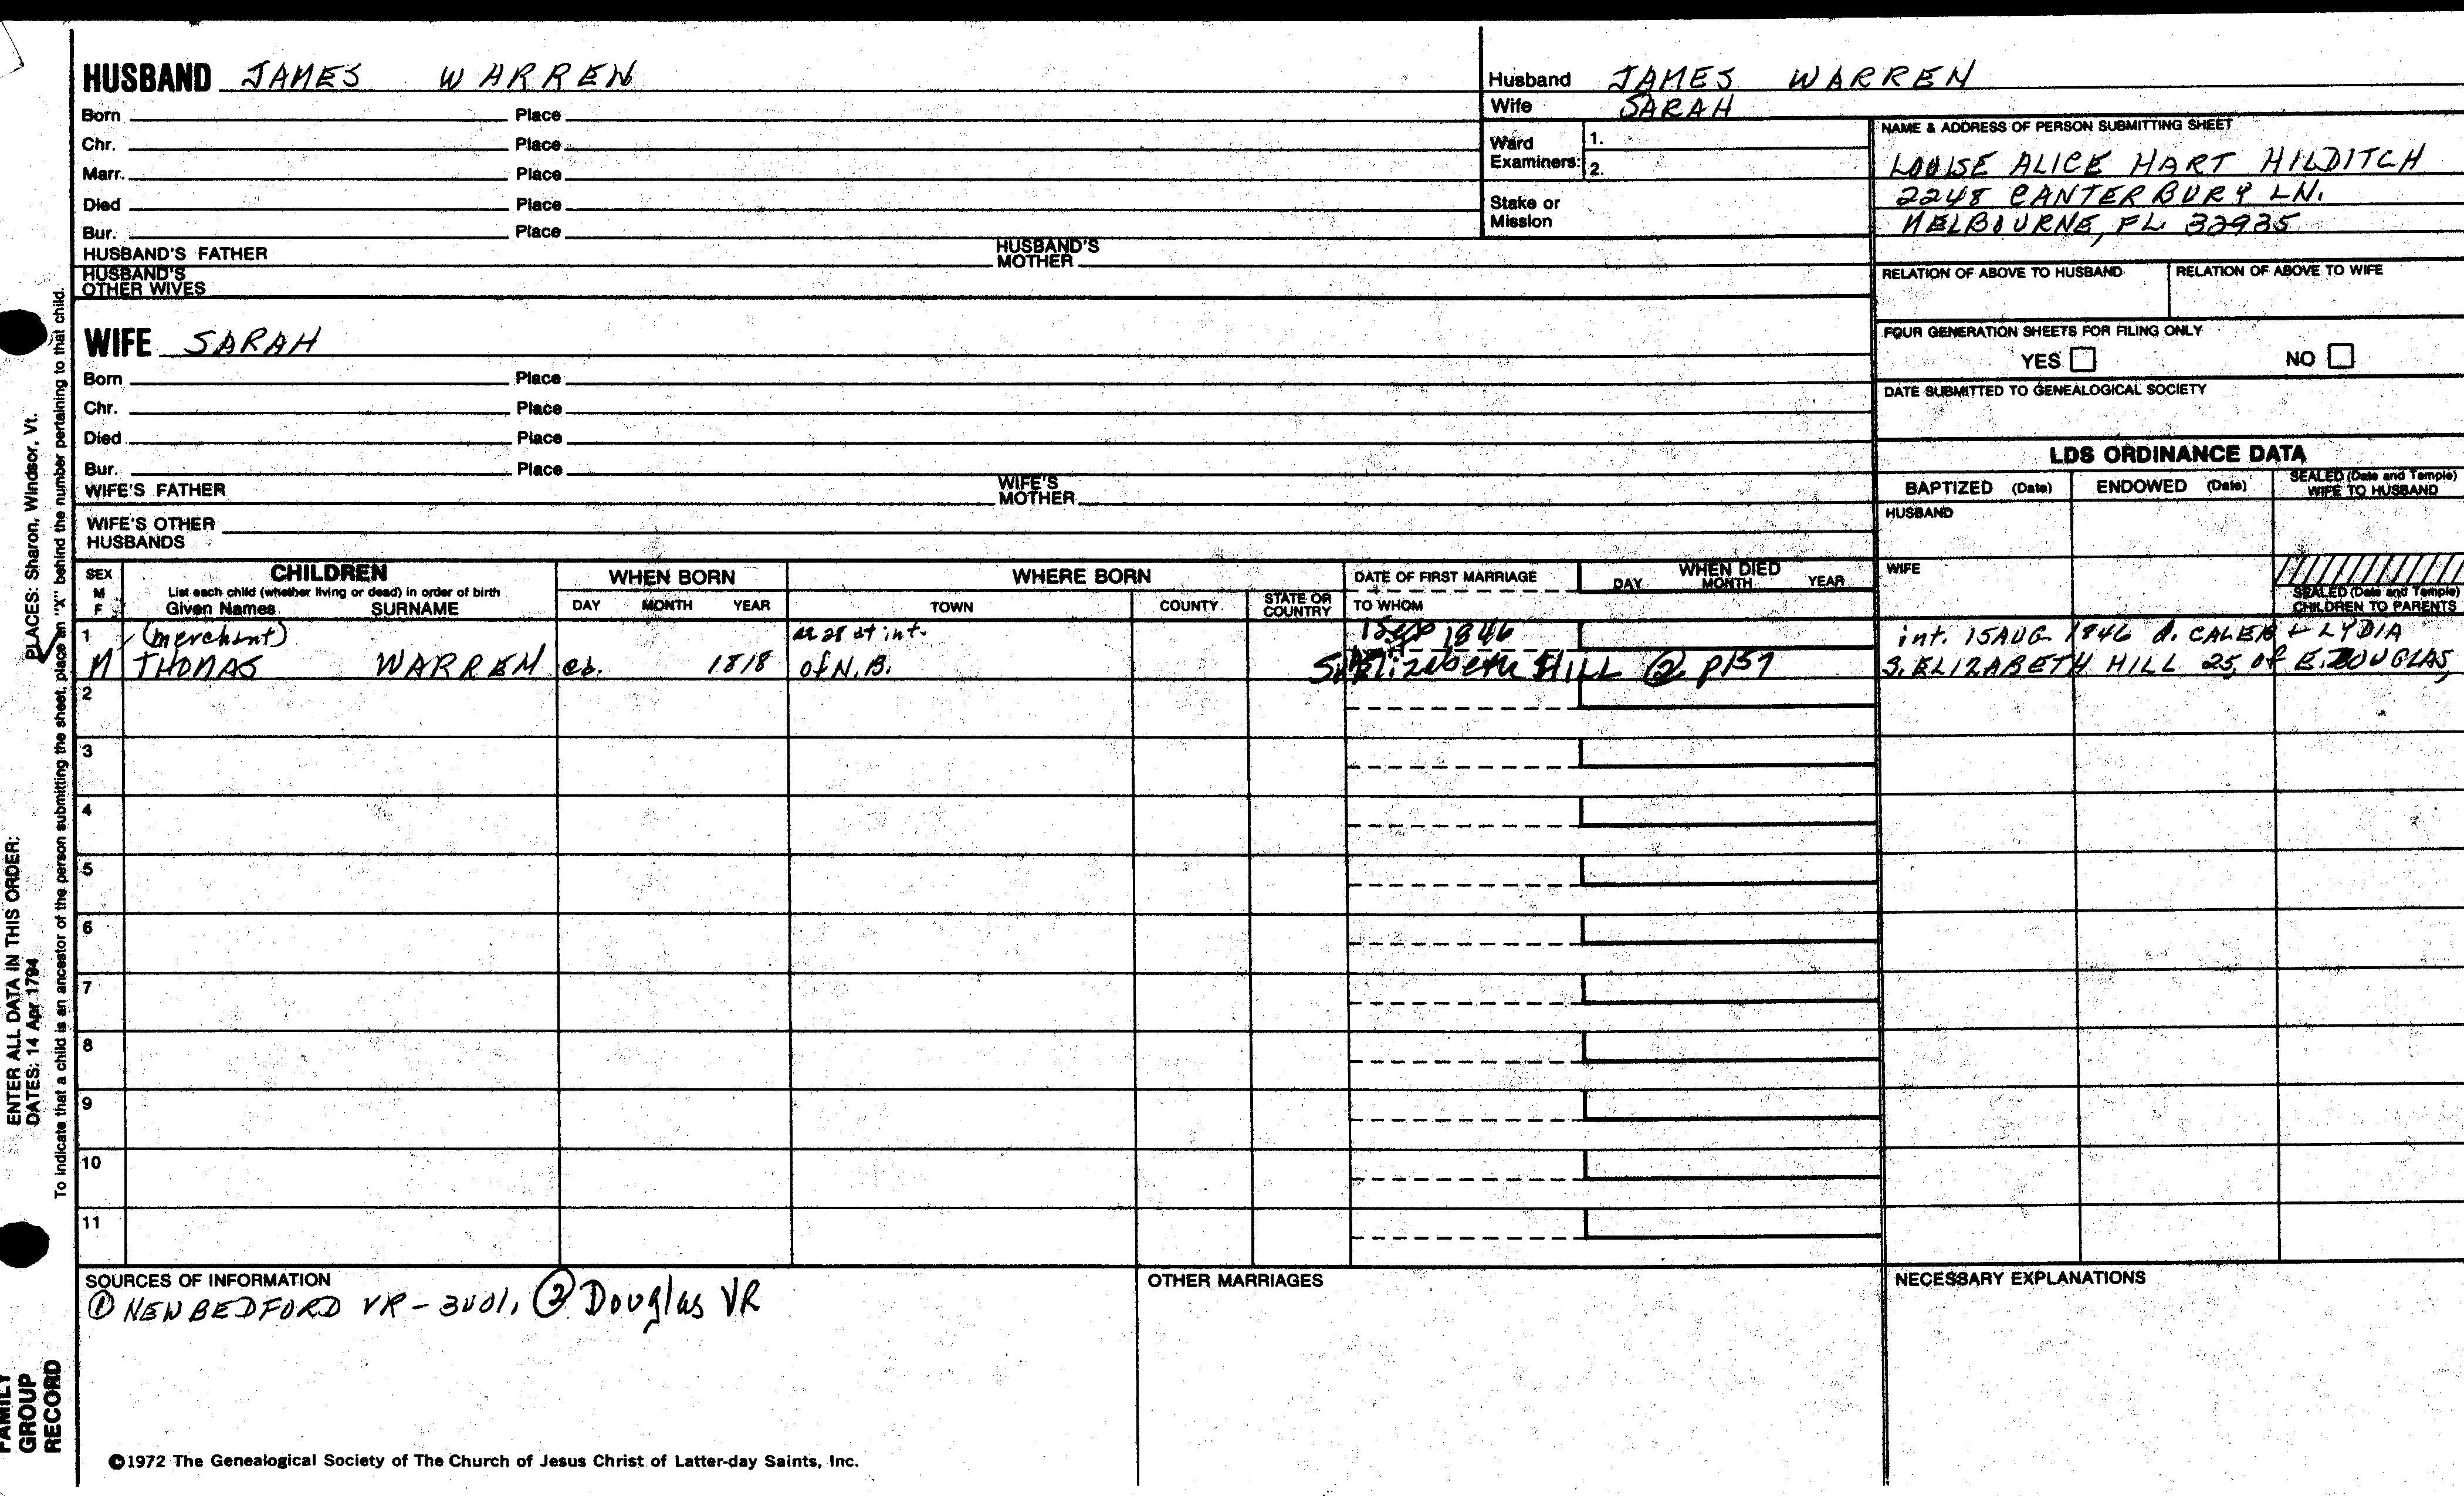 HUSBAND JAMES WARREN
Born Place
Chr. Place
Marr. Place
Died Place
Bur. Place
HUSBAND'S FATHER HUSBAND'S MOTHER
HUSBAND'S OTHER WIVES
WIFE SARAH
Born Place
Chr. Place
Died Place
Bur. Place
WIFE'S FATHER WIFE'S MOTHER
WIFE'S OTHER HUSBANDS
Husband JAMES WARREN
Wife SARAH
Ward Examiners: 1.
2.
Stake or Mission
NAME & ADDRESS OF PERSON SUBMITTING SHEET
LOUISE ALICE HART HILDITCH
2248 CANTERBURY LN.
MELBOURNE, FL 32935
RELATION OF ABOVE TO HUSBAND RELATION OF ABOVE TO WIFE
FOUR GENERATION SHEETS FOR FILING ONLY
YES NO
DATE SUBMITTED TO GENEALOGICAL SOCIETY
LDS ORDINANCE DATA
BAPTIZED (Date) ENDOWED (Date) SEALED (Date and Temple) WIFE TO HUSBAND
HUSBAND
WIFE
SEALED (Date and Temple) CHILDREN TO PARENTS
SEX M F
CHILDREN
List each child (whether living or dead) in order of birth
Given Names SURNAME
WHEN BORN
DAY MONTH YEAR
WHERE BORN
TOWN COUNTY STATE OR COUNTRY
DATE OF FIRST MARRIAGE
TO WHOM
WHEN DIED
DAY MONTH YEAR
1 (merchant) 28 at int. 1846 int. 15 AUG 1846 d. CALEB + LYDIA
M THOMAS WARREN cb. 1818 of N.B. Elizabeth HILL ② p157 S. ELIZABETH HILL 25, of E. DOUGLAS,
2
3
4
5
6
7
8
9
10
11
SOURCES OF INFORMATION
① NEW BEDFORD VR - 3V01, ② Douglas VR
OTHER MARRIAGES
NECESSARY EXPLANATIONS
©1972 The Genealogical Society of The Church of Jesus Christ of Latter-day Saints, Inc.
ENTER ALL DATA IN THIS ORDER:
DATES: 14 Apr 1794 PLACES: Sharon, Windsor, Vt.
To indicate that a child is an ancestor of the person submitting the sheet, place an "X" behind the number pertaining to that child.
FAMILY
GROUP
RECORD